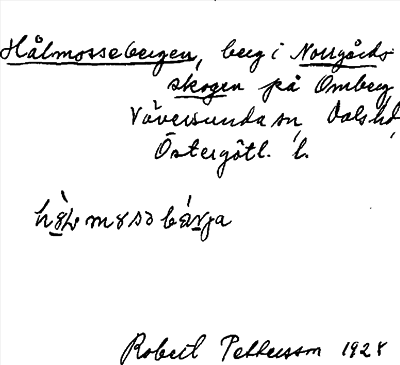 Hålmossebergen, berg i Norrgårds
skogen på Omberg
Väversunda sn, Dals hd,
Östergötl. l.
Robert Pettersson 1928